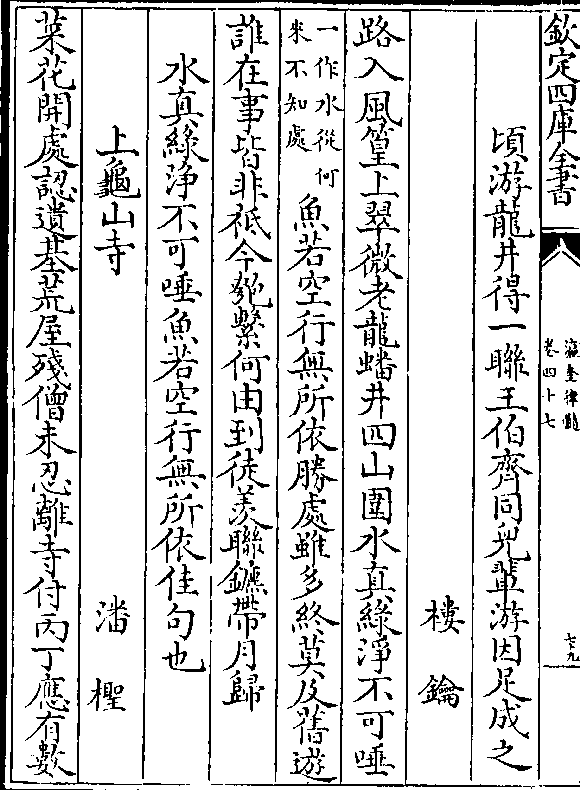 欽定四庫全書
瀛奎律髓
卷四十七
六十九
頃游龍井得一聯王伯齊同兒輩游因足成之
樓鑰
路入風篁上翠微老龍蟠井四山圍水真綠淨不可唾
一作水從何
來不知處
魚若空行無所依勝處雖多終莫及舊遊
誰在事皆非祗今匏繫何由到徒羨聯鑣帶月歸
水真綠淨不可唾魚若空行無所依佳句也
上龜山寺
潘檉
菜花開處認遺基荒屋殘僧未忍離寺付丙丁應有數